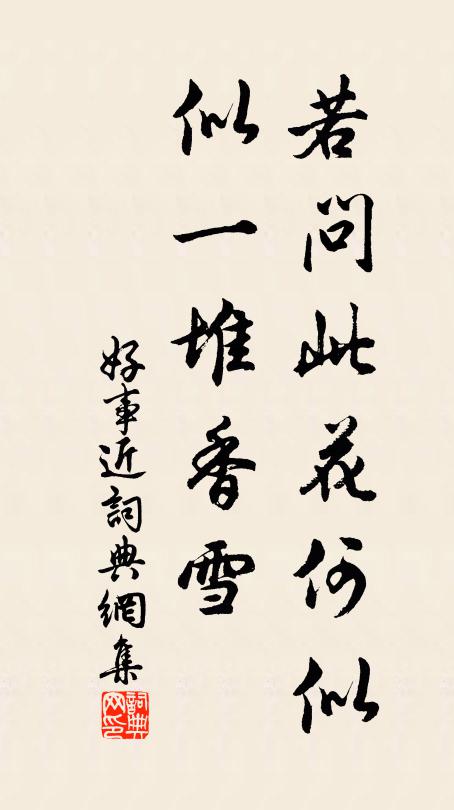 若問此花何似
似一堆香雪
好事近詞典網集
詞典网印